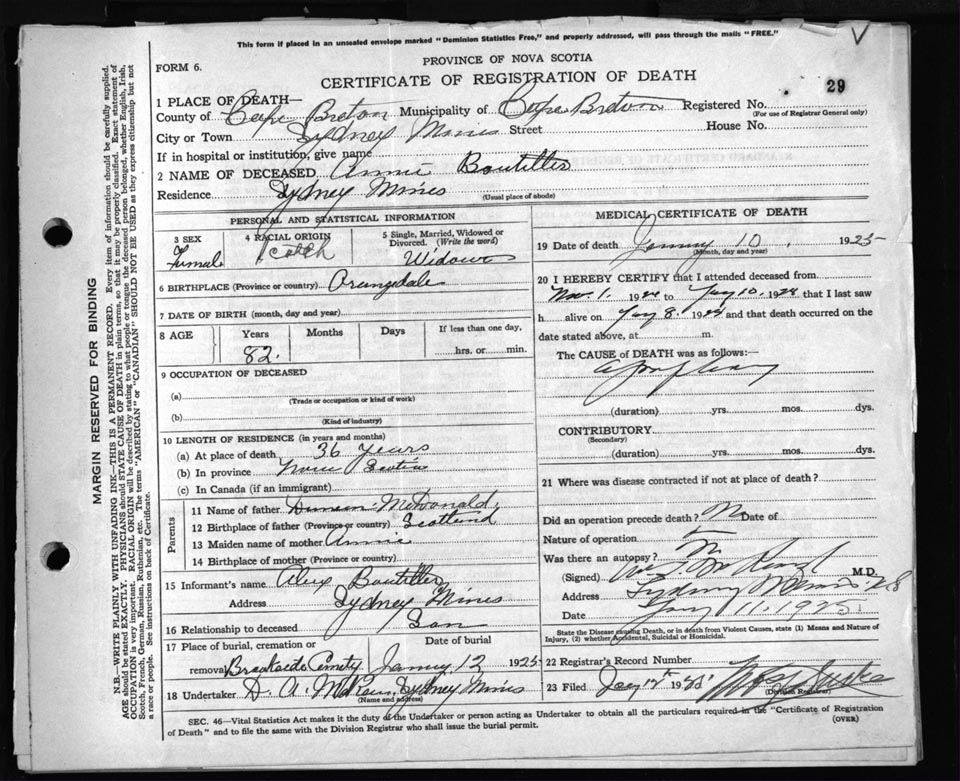 This form if placed in an unsealed envelope marked "Dominion Statistics Free," and properly addressed, will pass through the mails "FREE."
V
PROVINCE OF NOVA SCOTIA
FORM 6.
CERTIFICATE OF REGISTRATION OF DEATH
29
1 PLACE OF DEATH—
County of Cape Breton Municipality of Cape Breton Registered No.
(For use of Registrar General only)
City or Town Sydney Mines Street House No.
If in hospital or institution, give name
2 NAME OF DECEASED Annie Boutilier
Residence Sydney Mines (Usual place of abode)
MARGIN RESERVED FOR BINDING
N.B.—WRITE PLAINLY WITH UNFADING INK—THIS IS A PERMANENT RECORD. Every item of information should be carefully supplied.
AGE should be stated EXACTLY. PHYSICIANS should STATE CAUSE OF DEATH in plain terms, so that it may be properly classified. Exact statement of
OCCUPATION is very important. RACIAL ORIGIN will be described by stating to what people or tongue the deceased person belonged, whether English, Irish,
Scotch, French, German, Russian, Ruthenian, etc. The terms "AMERICAN" or "CANADIAN" SHOULD NOT BE USED as they express citizenship but not
a race or people. See instructions on back of Certificate.
PERSONAL AND STATISTICAL INFORMATION
3 SEX 4 RACIAL ORIGIN 5 Single, Married, Widowed or
Divorced. (Write the word)
Female Scotch Widow
6 BIRTHPLACE (Province or country) Orangedale
7 DATE OF BIRTH (month, day and year)
8 AGE Years Months Days If less than one day,
82. hrs. or min.
9 OCCUPATION OF DECEASED
(a)
(Trade or occupation or kind of work)
(b)
(Kind of industry)
10 LENGTH OF RESIDENCE (in years and months)
(a) At place of death 36 years
(b) In province Nova Scotia
(c) In Canada (if an immigrant)
Parents
11 Name of father Duncan McDonald
12 Birthplace of father (Province or country) Scotland
13 Maiden name of mother Annie
14 Birthplace of mother (Province or country)
15 Informant's name Alex Boutilier
Address Sydney Mines
16 Relationship to deceased Son
17 Place of burial, cremation or Date of burial
removal Brookside 12 1925
18 Undertaker D. A. Sydney Mines
(Name and address)
MEDICAL CERTIFICATE OF DEATH
19 Date of death 10, 1925
(Month, day and year)
20 I HEREBY CERTIFY that I attended deceased from
Nov. 1. 1924 to Jany 10, 1924 that I last saw
h alive on Jany 8. 1924 and that death occurred on the
date stated above, at m.
The CAUSE of DEATH was as follows:—
Apoplexy
(duration) yrs. mos. dys.
CONTRIBUTORY
(Secondary)
(duration) yrs. mos. dys.
21 Where was disease contracted if not at place of death?
Did an operation precede death? No Date of
Nature of operation
Was there an autopsy? No
(Signed) M.D.
Address Sydney Mines N S
Date Jany 11. 1925
State the Disease causing Death, or in death from Violent Causes, state (1) Means and Nature of
Injury, (2) whether Accidental, Suicidal or Homicidal.
22 Registrar's Record Number
23 Filed 1925
(Division Registrar)
SEC. 46—Vital Statistics Act makes it the duty of the Undertaker or person acting as Undertaker to obtain all the particulars required in the "Certificate of Registration
of Death" and to file the same with the Division Registrar who shall issue the burial permit. (OVER)